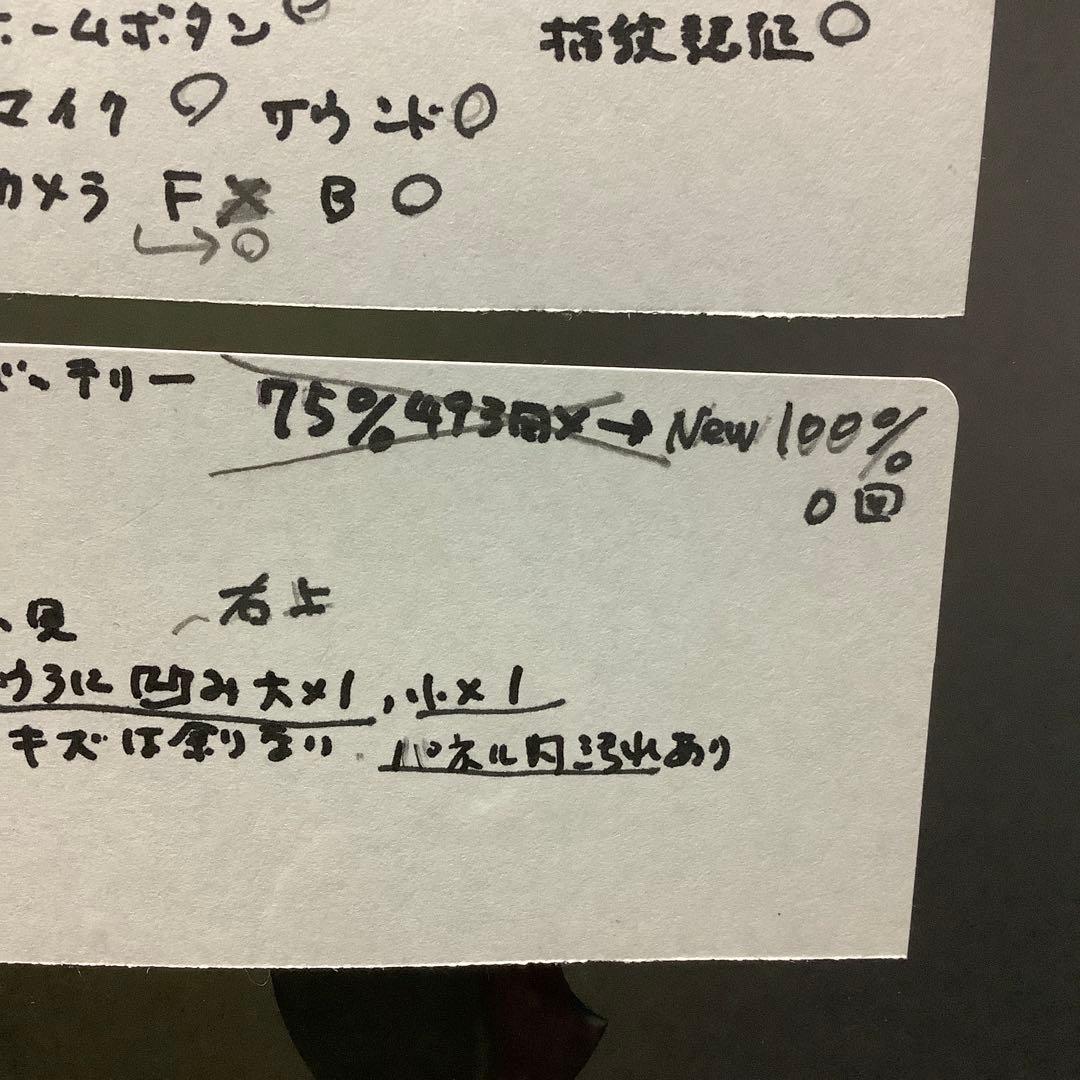 ホームボタン○ 指紋認証○
マイク○ サウンド○
カメラ F× B○
→○
バッテリー 75% 493回× → New 100%
0回
右上
うらに凹み大×1, 小×1
キズは余りない パネル内汚れあり